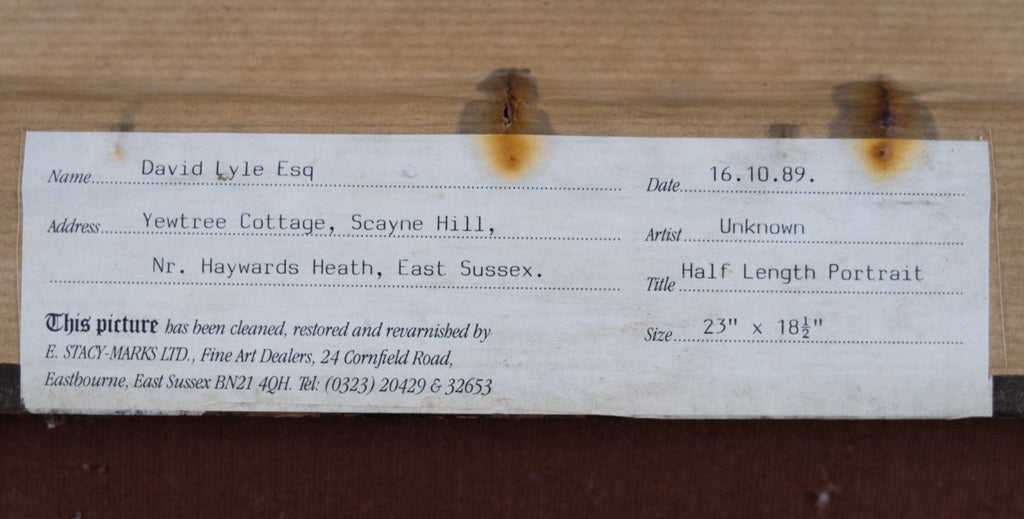 Name David Lyle Esq
Date 16.10.89.
Address Yewtree Cottage, Scayne Hill,
Artist Unknown
Nr. Haywards Heath, East Sussex.
Title Half Length Portrait
This picture has been cleaned, restored and revarnished by
Size 23" x 18½"
E. STACY-MARKS LTD., Fine Art Dealers, 24 Cornfield Road,
Eastbourne, East Sussex BN21 4QH. Tel: (0323) 20429 & 32653